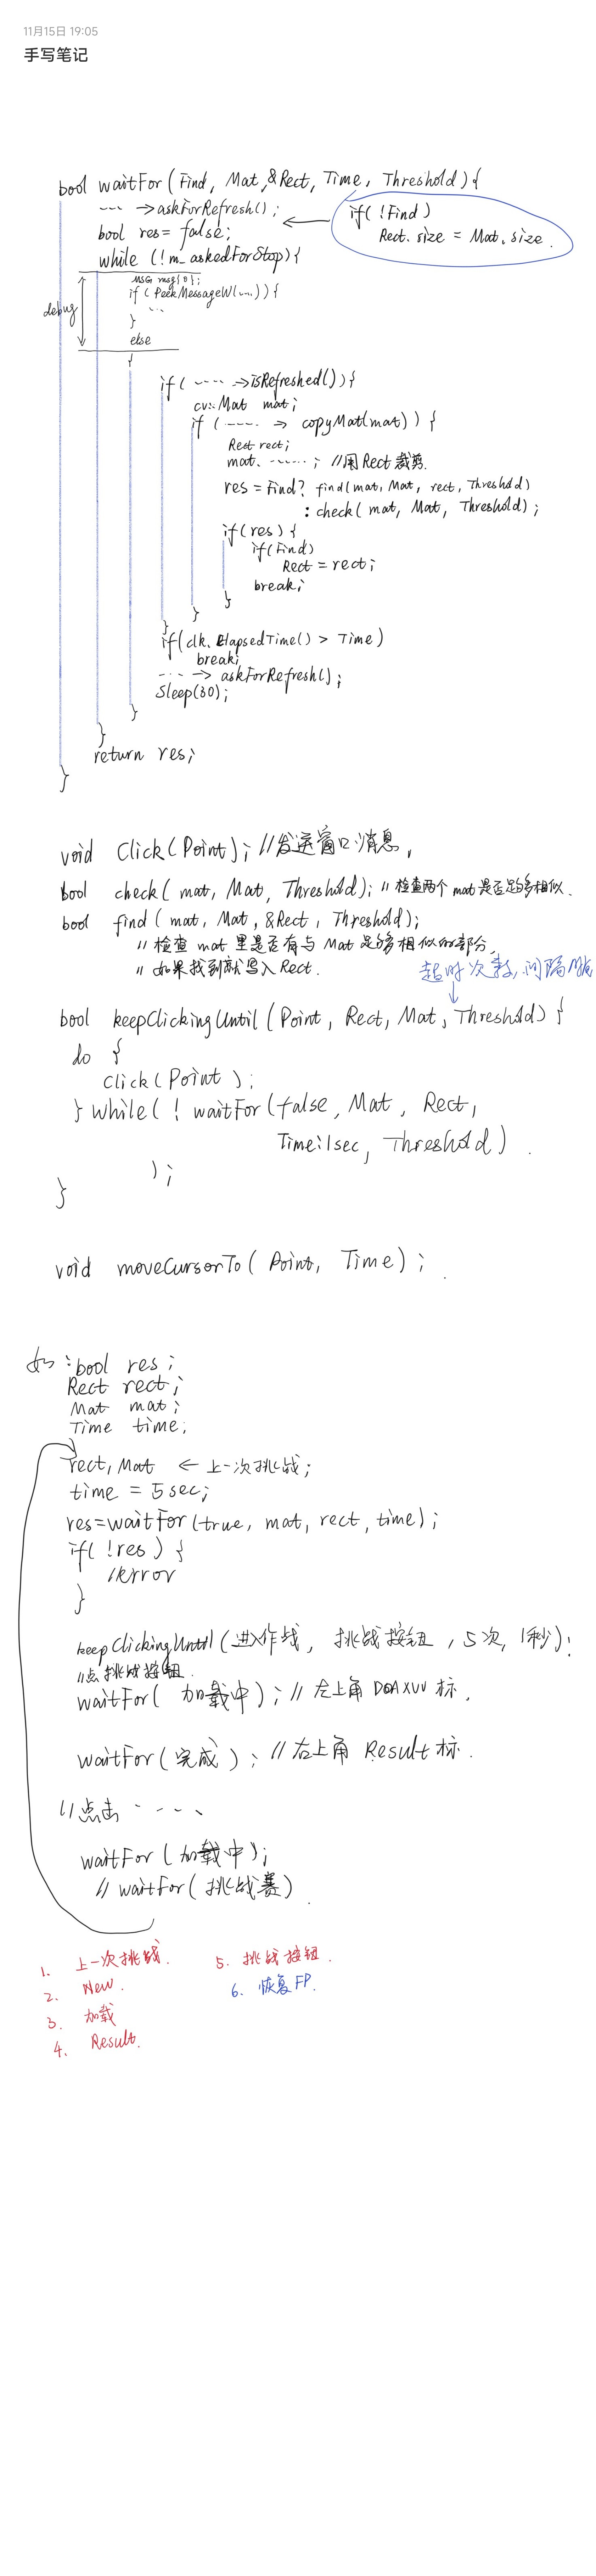 11月15日 19:05
手写笔记
bool waitFor(Find, Mat, &Rect, Time, Threshold){
---- →askForRefresh();
bool res= false;
if( !Find)
Rect. size = Mat. size.
while (!m_askedForStop){
debug
MSG msg{0};
if (PeekMessageW(....)){
...
}
else
{
if( ---- →isRefreshed()){
cv::Mat mat;
if (---- → copyMat(mat)) {
Rect rect;
mat. ------; //用Rect裁剪.
res = Find? find(mat, Mat, rect, Threshold)
: check( mat, Mat, Threshold);
if(res) {
if(Find)
Rect = rect;
break;
}
}
}
if(clk. ElapsedTime() > Time)
break;
----> askForRefresh();
Sleep(30);
}
}
return res;
}
void Click(Point); //发送窗口消息,
bool check( mat, Mat, Threshold); // 检查两个mat是否足够多相似.
bool find( mat, Mat, &Rect, Threshold);
//检查 mat 里是否有与 Mat 足够相似的部分.
//如果找到就写入 Rect.
超时次数, 间隔
bool keepClickingUntil(Point, Rect, Mat, Threshold) {
do {
Click(Point);
} while( ! waitFor(false, Mat, Rect,
Time:1sec, Threshold).
);
}
void moveCursorTo( Point, Time);.
如:bool res;
Rect rect;
Mat mat;
Time time;
rect, Mat ← 上一次挑战;
time = 5sec;
res=waitFor(true, mat, rect, time);
if( !res) {
//error
}
keepClickingUntil(进入作战, 挑战按钮, 5次, 1秒);
//点挑战按钮.
waitFor( 加载中); // 左上角 DOAXVV 标.
waitFor(完成); //右上角 Result标.
//点击 ----
waitFor(加载中);
// waitFor(挑战赛).
1. 上一次挑战.
2. New.
3. 加载
4. Result.
5. 挑战按钮.
6. 恢复FP.